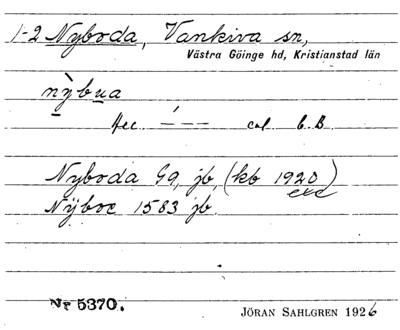 1-2 Nyboda, Vankiva sn,
Västra Göinge hd, Kristianstad län
nỳbua
Acc. — — — cal. b. B.
Nyboda G9, jb, (kb 1920)
exc
Nÿboe 1583 jb.
Nr 5370.
JÖRAN SAHLGREN 1926